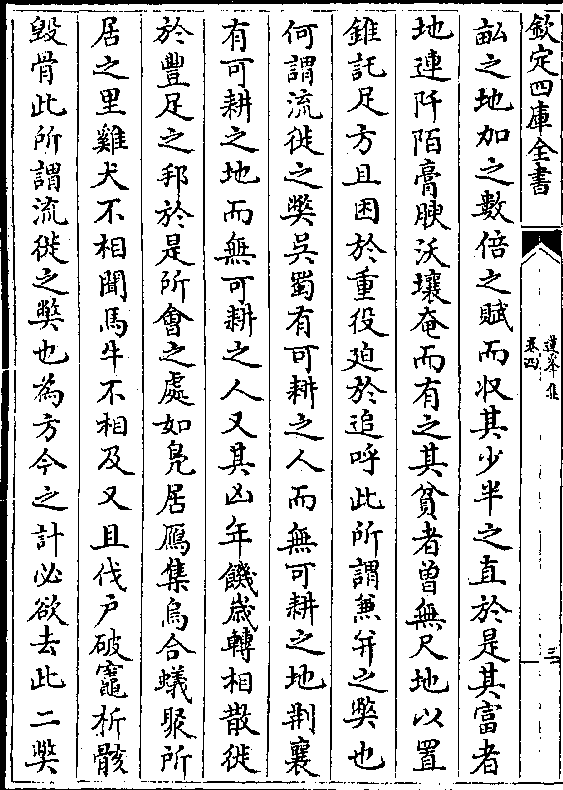 欽定四庫全書
蓮峯集
卷四
三
畆之地加之數倍之賦而収其少半之直於是其富者
地連阡陌膏腴沃壤奄而有之其貧者曽無尺地以置
錐託足方且困於重役廹於追呼此所謂兼并之獘也
何謂流徙之獘吳蜀有可耕之人而無可耕之地荆襄
有可耕之地而無可耕之人又其凶年饑歳轉相散徙
於豐足之邦於是所會之處如鳬居鴈集烏合蟻聚所
居之里雞犬不相聞馬牛不相及又且伐户破竈析骸
毁骨此所謂流徙之獘也為方今之計必欲去此二獘